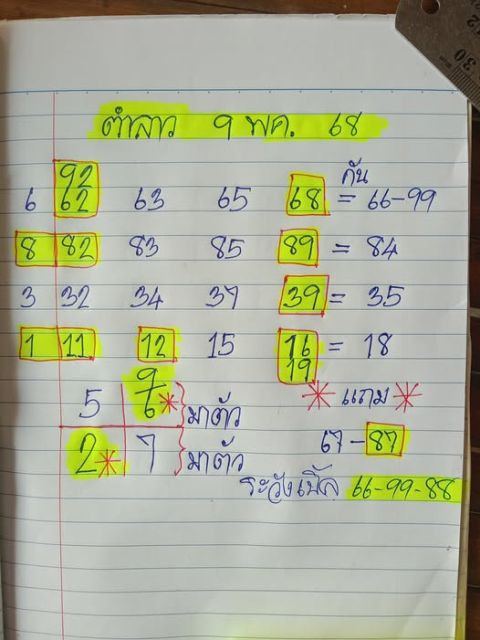 ตำลาว 9 พค. 68
92
กัน
6 62 63 65 68 = 66-99
8 82 83 85 89 = 84
3 32 34 37 39 = 35
1 11 12 15 16 = 18
19
9
5 6* }มาตัว * แถม *
2* 7 }มาตัว 67-87
ระวังเบิ้ล 66-99-88